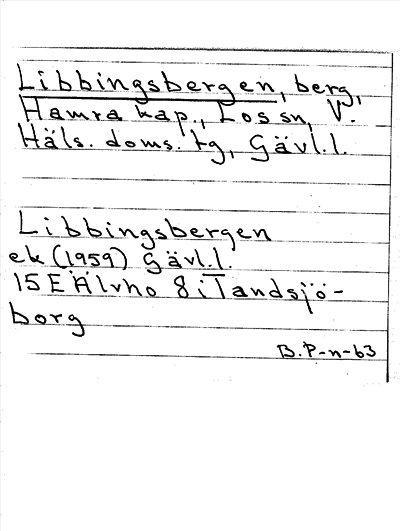 Libbingsbergen, berg,
Hamra kap., Los sn, V.
Häls. doms. tg, Gävl.l.
Libbingsbergen
ek (1959) Gävl.l.
15 E Älvho 8 i Tandsjö-
borg
B. P-n-63